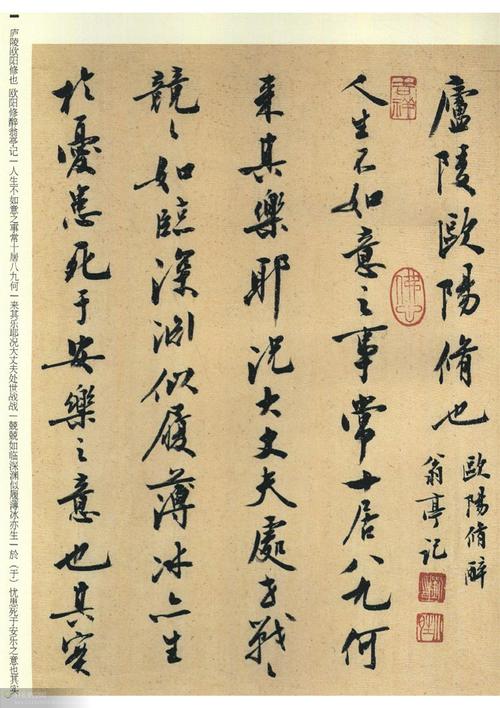 廬陵歐陽脩也
歐陽脩醉
翁亭記
人生不如意之事常十居八九何
来其樂耶况大丈夫處世戰〻
競〻如臨深渊似履薄冰亦生
於憂患死于安樂之意也其实
吉祥
佛山
庐陵欧阳修也 欧阳修醉翁亭记一人生不如意之事常十居八九何一来其乐耶况大丈夫处世战战一競競如临深渊似履薄冰亦生一於（于）忧患死于安乐之意也其实